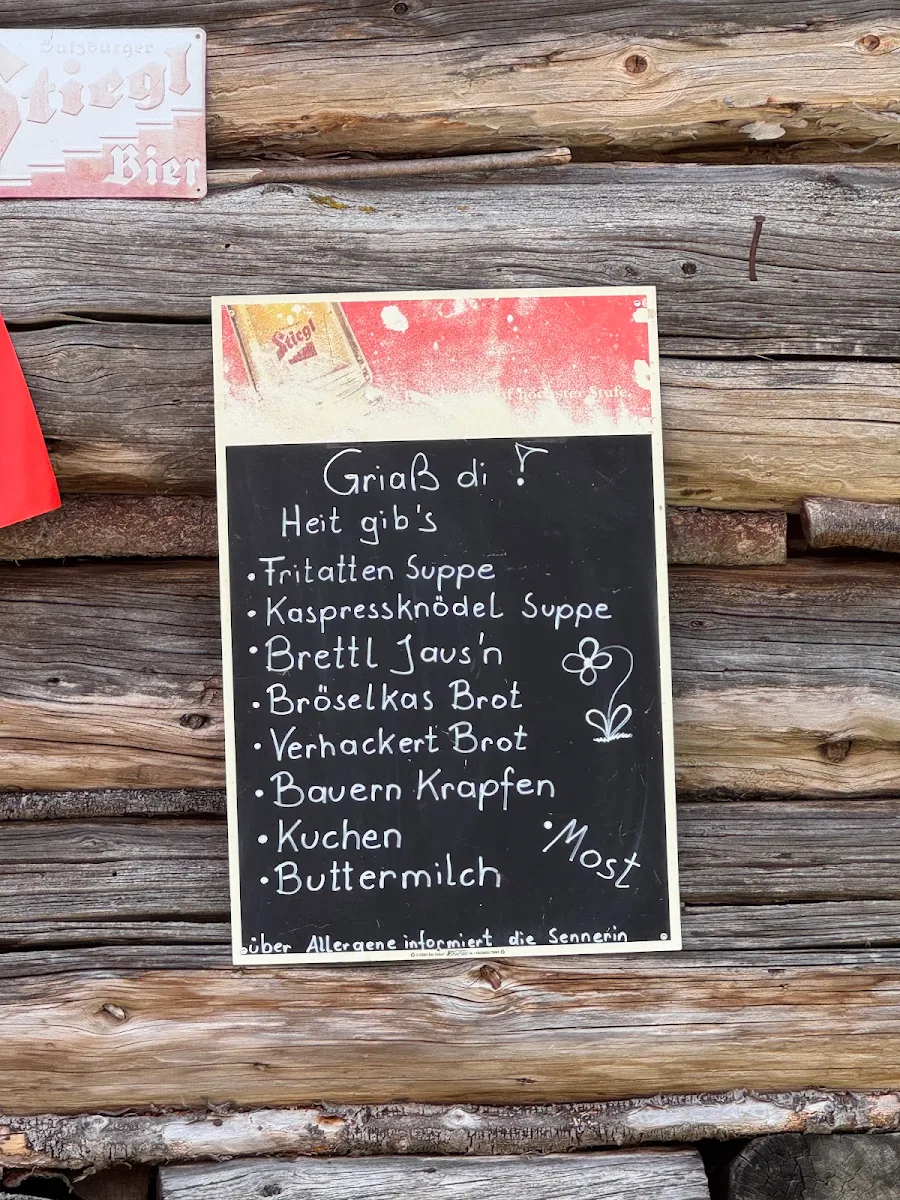 Salzburger
Stiegl
Bier
Stiegl
höchster Stufe.
Griaß di !
Heit gib's
• Fritatten Suppe
• Kaspressknödel Suppe
• Brettl Jaus'n
• Bröselkas Brot
• Verhackert Brot
• Bauern Krapfen
• Kuchen
• Most
• Buttermilch
über Allergene informiert die Sennerin